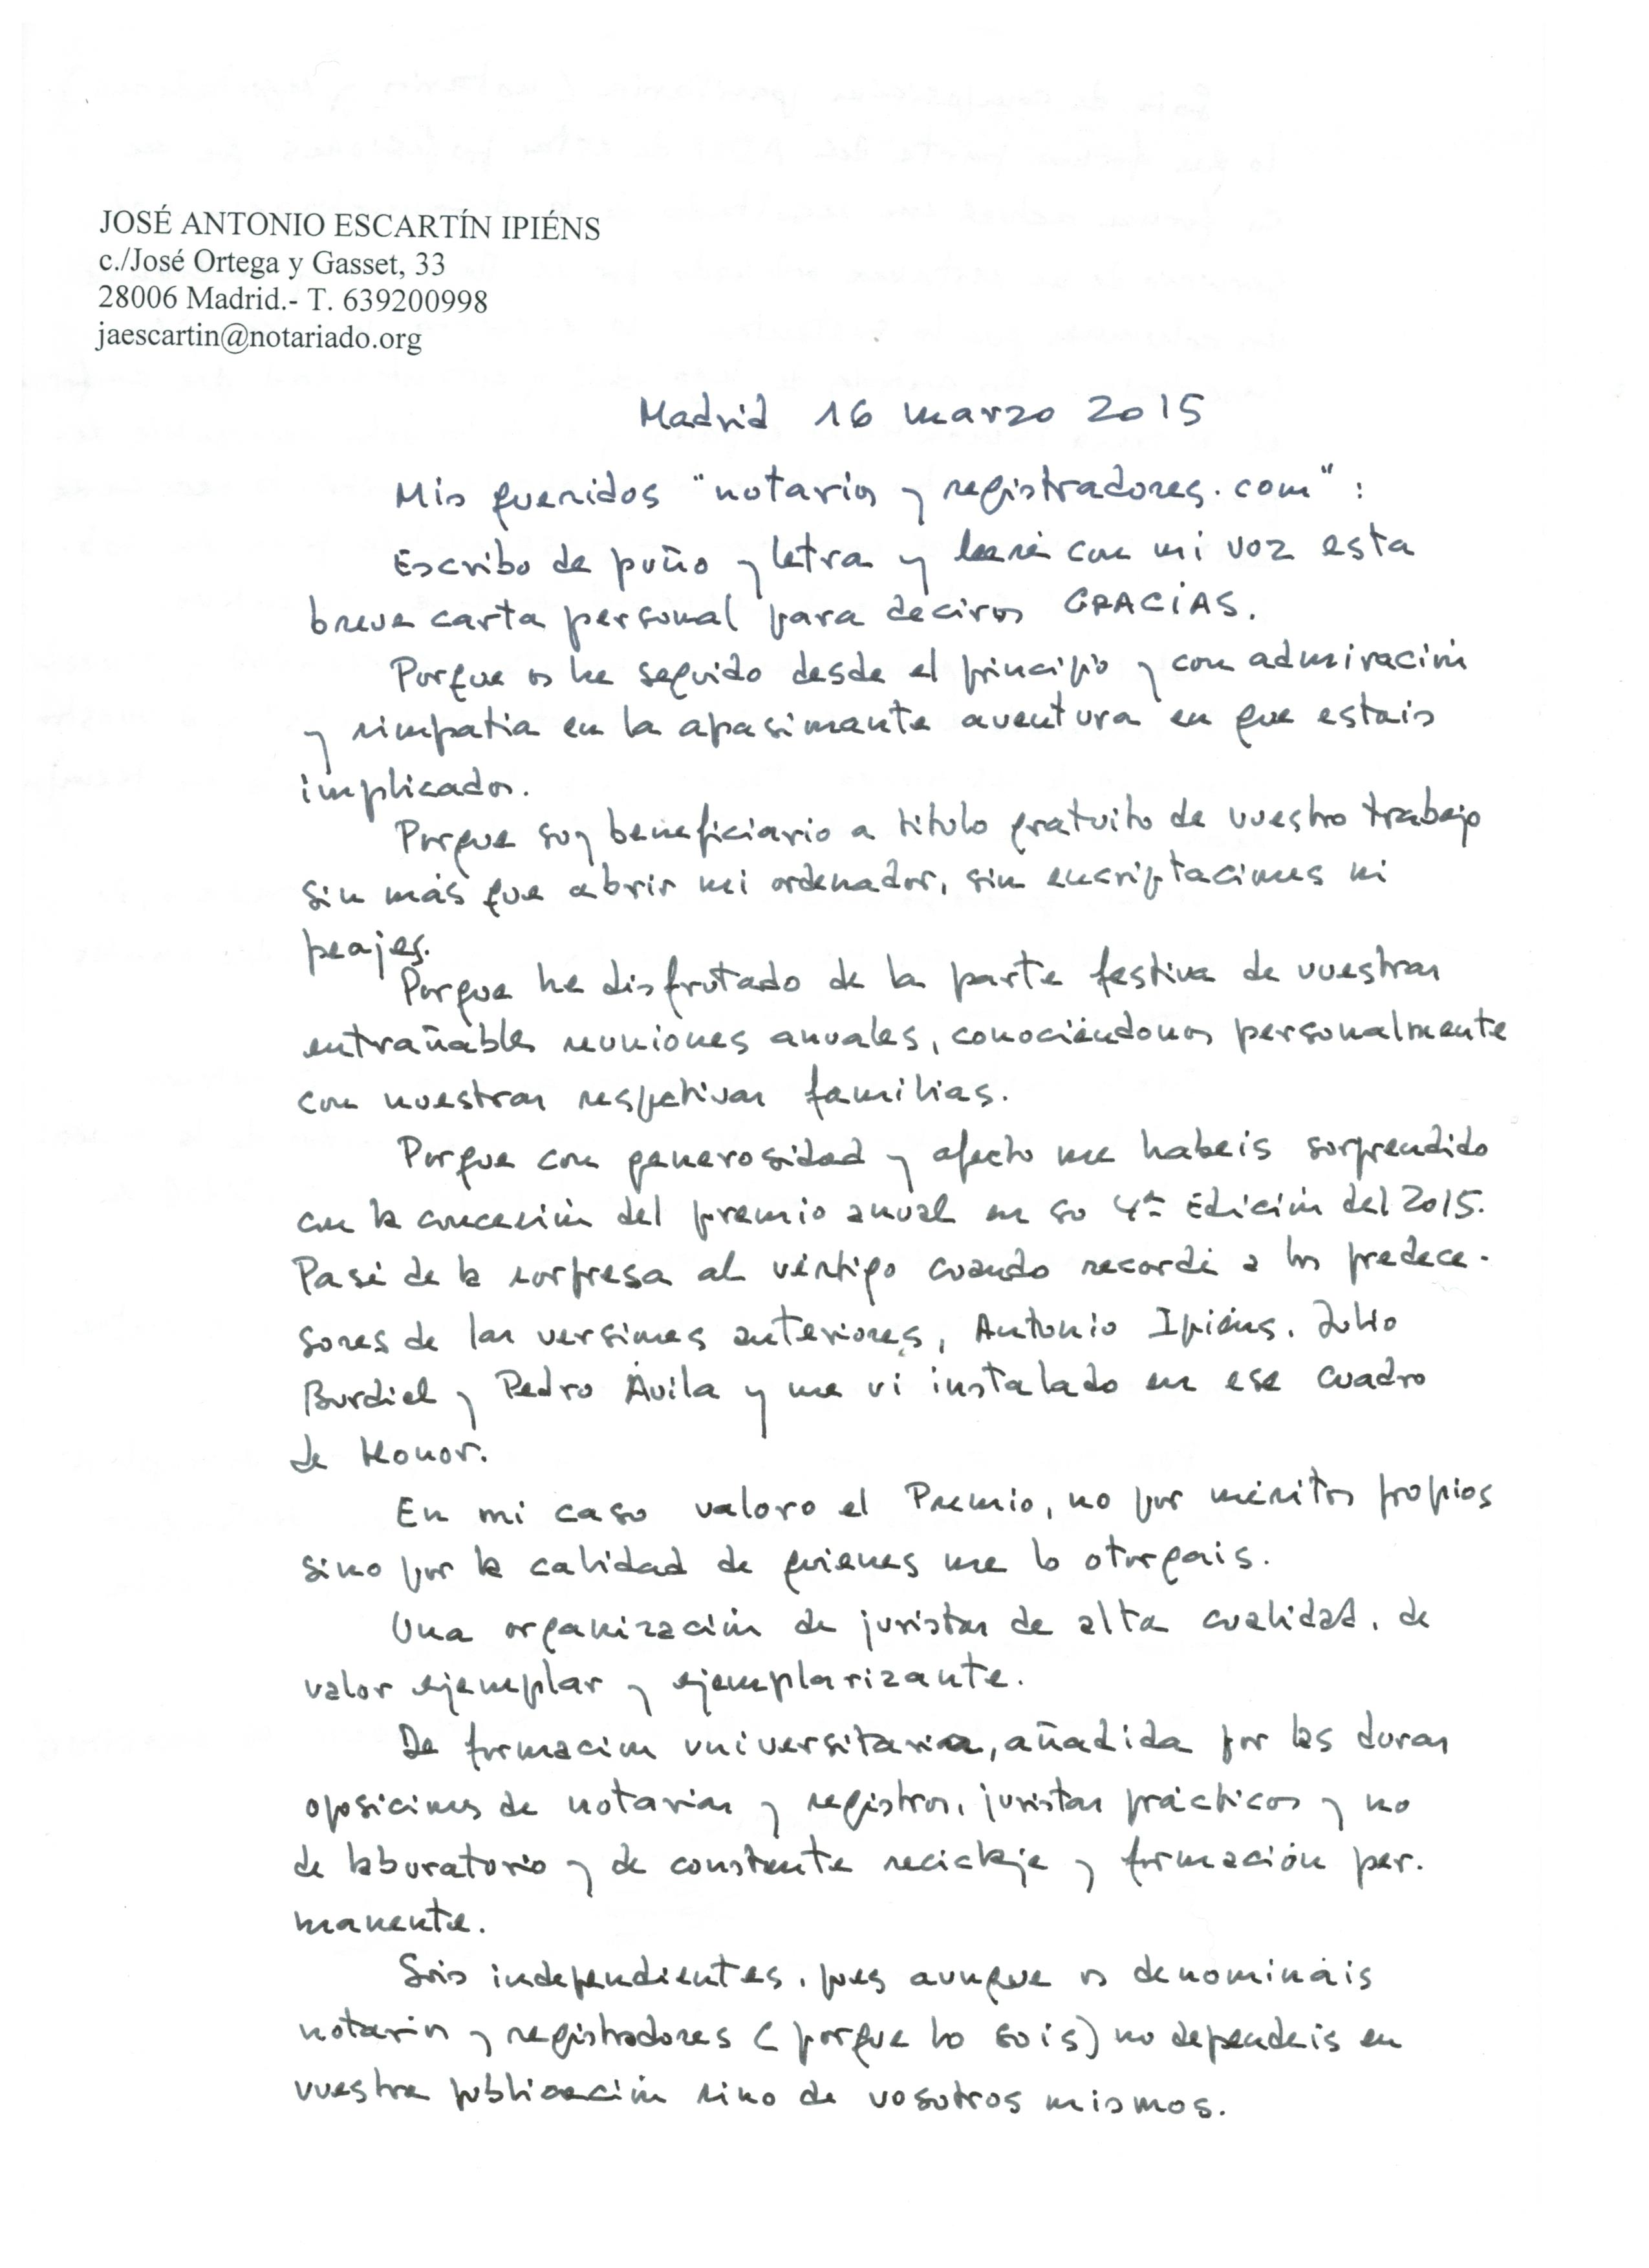 JOSÉ ANTONIO ESCARTÍN IPIÉNS
c./José Ortega y Gasset, 33
28006 Madrid.- T. 639200998
jaescartin@notariado.org
Madrid 16 marzo 2015
Mis queridos "notarios y registradores.com":
Escribo de puño y letra y leeré con mi voz esta
breve carta personal para deciros GRACIAS.
Porque os he seguido desde el principio y con admiración
y simpatia en la apasionante aventura en que estais
implicados.
Porque soy beneficiario a titulo gratuito de vuestro trabajo
sin más que abrir mi ordenador, sin encriptaciones ni
peajes.
Porque he disfrutado de la parte festiva de vuestras
entrañables reuniones anuales, conociéndonos personalmente
con nuestras respetivas familias.
Porque con generosidad y afecto me habeis sorprendido
con la concesión del premio anual en su 4ª Edición del 2015.
Pasé de la sorpresa al vértigo cuando recordé a los predece-
sores de las versiones anteriores, Antonio Ipiéns, Julio
Burdiel y Pedro Ávila y me vi instalado en ese cuadro
de Honor.
En mi caso valoro el Premio, no por méritos propios
sino por la calidad de quienes me lo otorgais.
Una organización de juristas de alta cualidad, de
valor ejemplar y ejemplarizante.
De formacion universitaria, añadida por las duras
oposiciones de notarias y registros, juristas prácticos y no
de laboratorio y de constante reciclaje y formación per-
manente.
Sois independientes, pues aunque os denomináis
notarios y registradores (porque lo sois) no dependeis en
vuestra publicación sino de vosotros mismos.